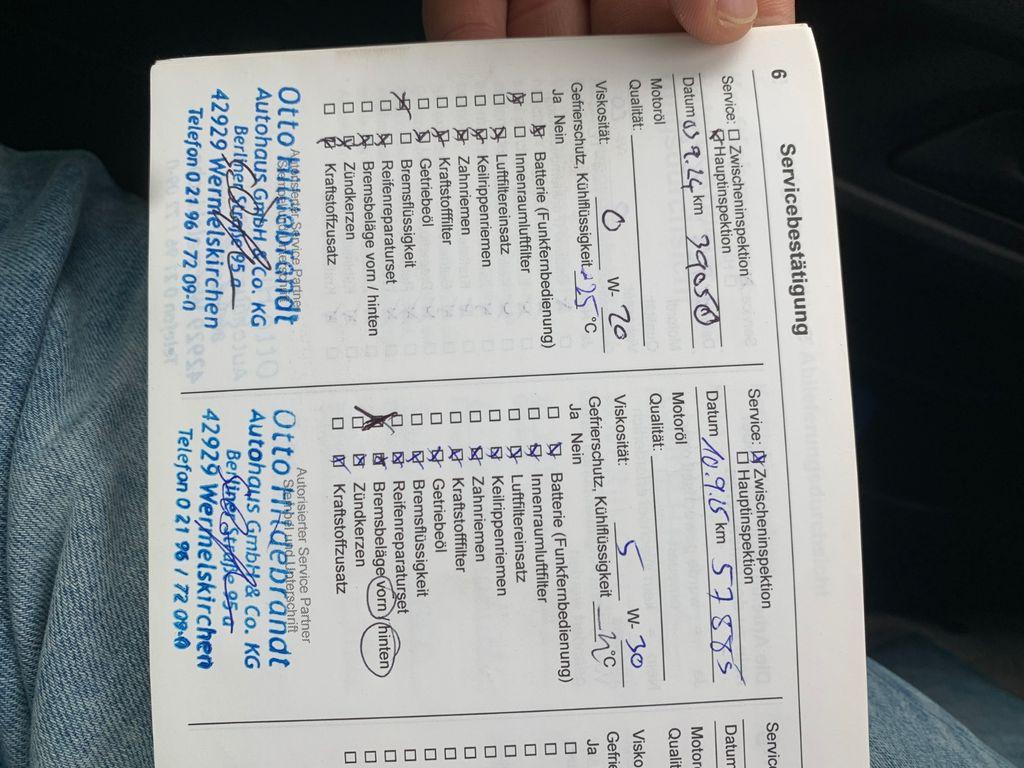 6
Servicebestätigung
Service: Zwischeninspektion
Hauptinspektion
Datum 03 9.24 km
Motoröl
Qualität:
Viskosität: 0 W- 20
Gefrierschutz, Kühlflüssigkeit -25 °C
Ja Nein
Batterie (Funkfernbedienung)
Innenraumluftfilter
Luftfiltereinsatz
Keilrippenriemen
Zahnriemen
Kraftstofffilter
Getriebeöl
Bremsflüssigkeit
Reifenreparaturset
Bremsbeläge vorn / hinten
Zündkerzen
Kraftstoffzusatz
Autorisierter Service Partner
Otto Hildebrandt
Autohaus GmbH & Co. KG
Berliner Straße 95 a
42929 Wermelskirchen
Telefon 0 21 96 / 72 09-0
Service: Zwischeninspektion
Hauptinspektion
Datum 10.9.25 km 57885
Motoröl
Qualität:
Viskosität: 5 W- 30
Gefrierschutz, Kühlflüssigkeit °C
Ja Nein
Batterie (Funkfernbedienung)
Innenraumluftfilter
Luftfiltereinsatz
Keilrippenriemen
Zahnriemen
Kraftstofffilter
Getriebeöl
Bremsflüssigkeit
Reifenreparaturset
Bremsbeläge vorn / hinten
Zündkerzen
Kraftstoffzusatz
Autorisierter Service Partner
Stempel und Unterschrift
Otto Hildebrandt
Autohaus GmbH & Co. KG
Berliner Straße 95 a
42929 Wermelskirchen
Telefon 0 21 96 / 72 09-0